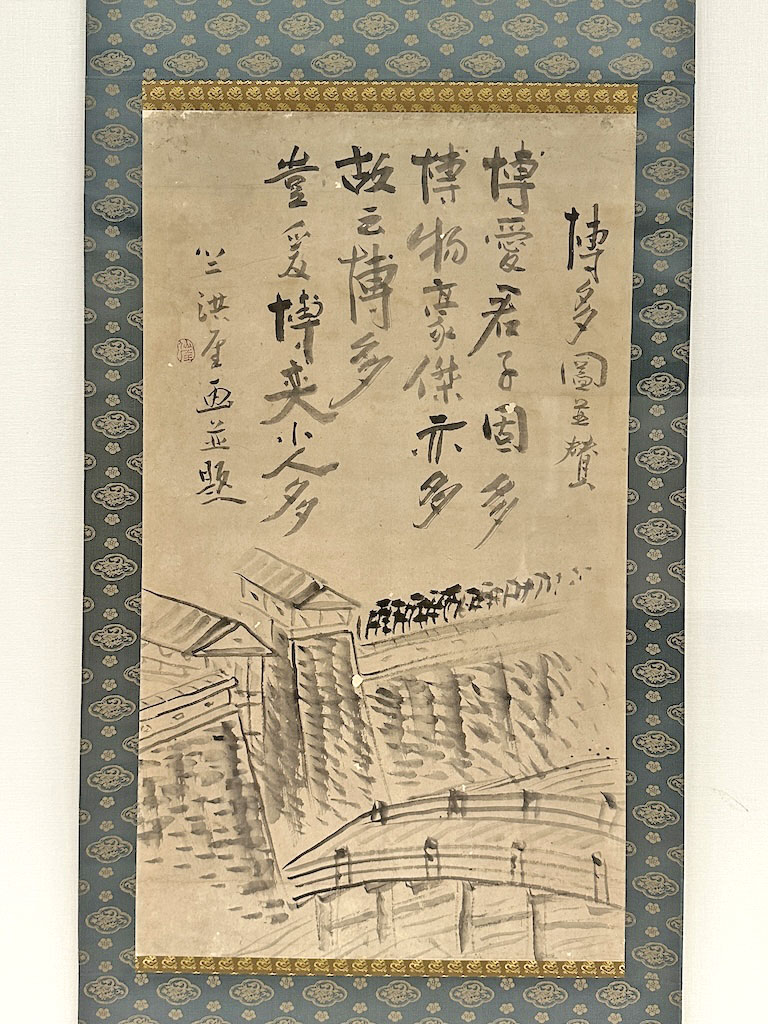 博多圖並贊
博愛君子固多
博物豪傑亦多
故云博多
豈爰博奕小人多
竺洪厓画並題